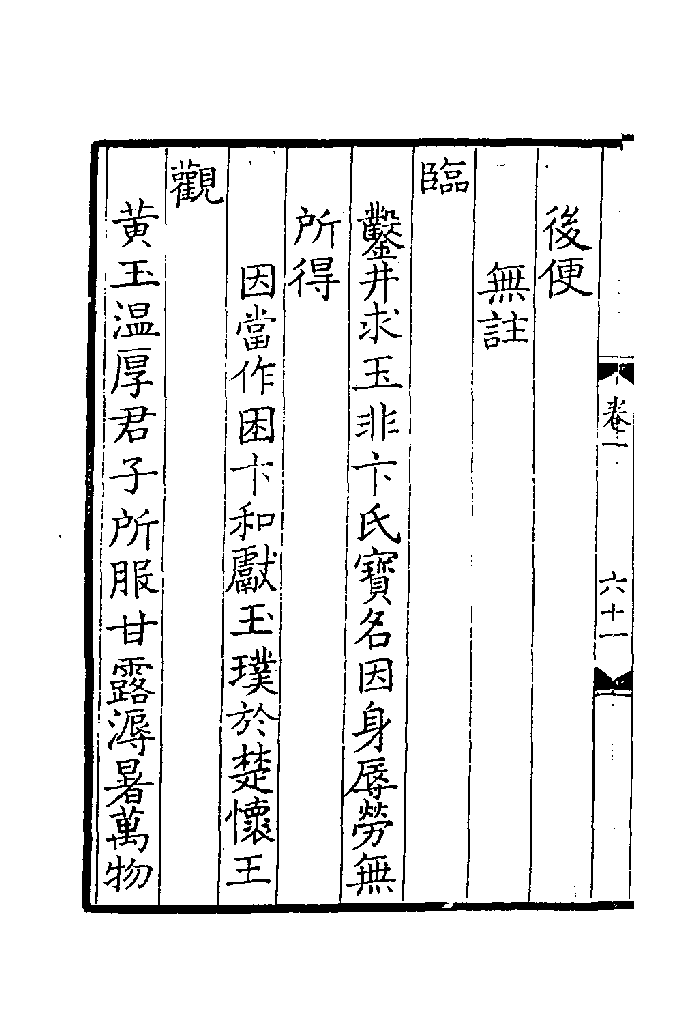 卷二
六十一
後便
無註
臨
鑿井求玉非卞氏寶名因身辱勞無
所得
因當作困卞和獻玉璞於楚懷王
觀
黃玉温厚君子所服甘露溽暑萬物